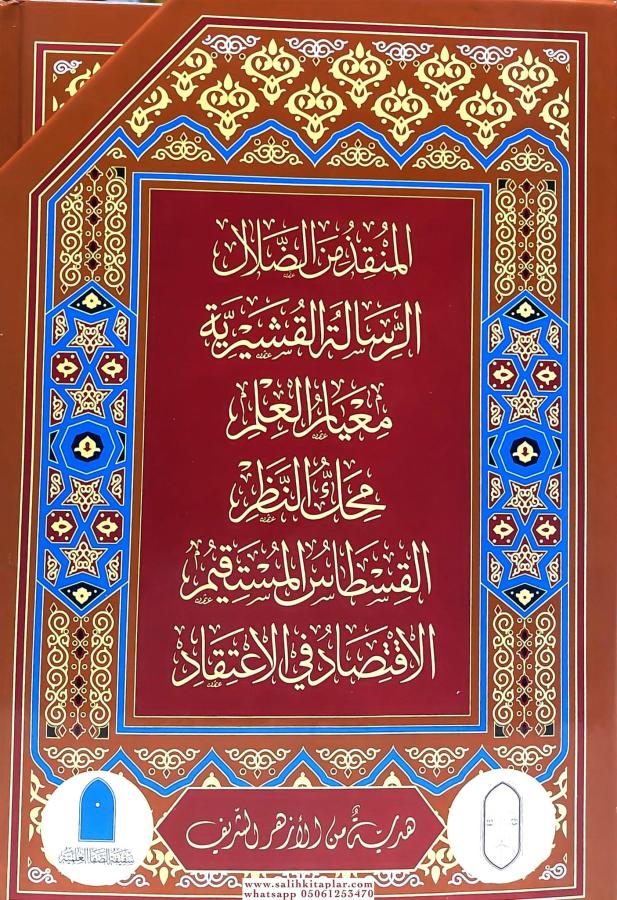 المُنْقِذُ مِنَ الضَّلَالِ
الرِّسَالَةُ القُشَيْرِيَّة
مِعْيَارُ العِلْمِ
مِحَكُّ النَّظَرِ
القِسْطَاسُ المُسْتَقِيمُ
الاقْتِصَادُ فِي الاعْتِقَادِ
هديّةٌ من الأزهر الشريف
سقيفة الصفا العلمية
www.salihkitaplar.com
whatsapp 05061253470